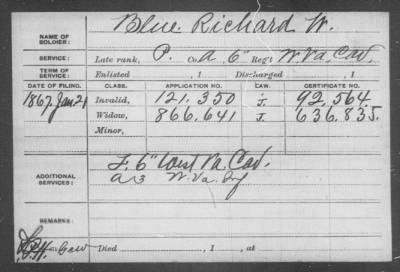 NAME OF SOLDIER: Blue, Richard W.
SERVICE: Late rank, P. Co. A, 6" Reg't W. Va. Cav.
TERM OF SERVICE: Enlisted , 1 Discharged , 1
DATE OF FILING. CLASS. APPLICATION NO. LAW. CERTIFICATE NO.
1867 Jan 21 Invalid, 121.350 J. 92.564
Widow, 866.641 J. 636.835.
Minor,
ADDITIONAL SERVICES: F. 6" West Va. Cav.
A 3 W. Va. Inf
REMARKS:
Died , 1 , at